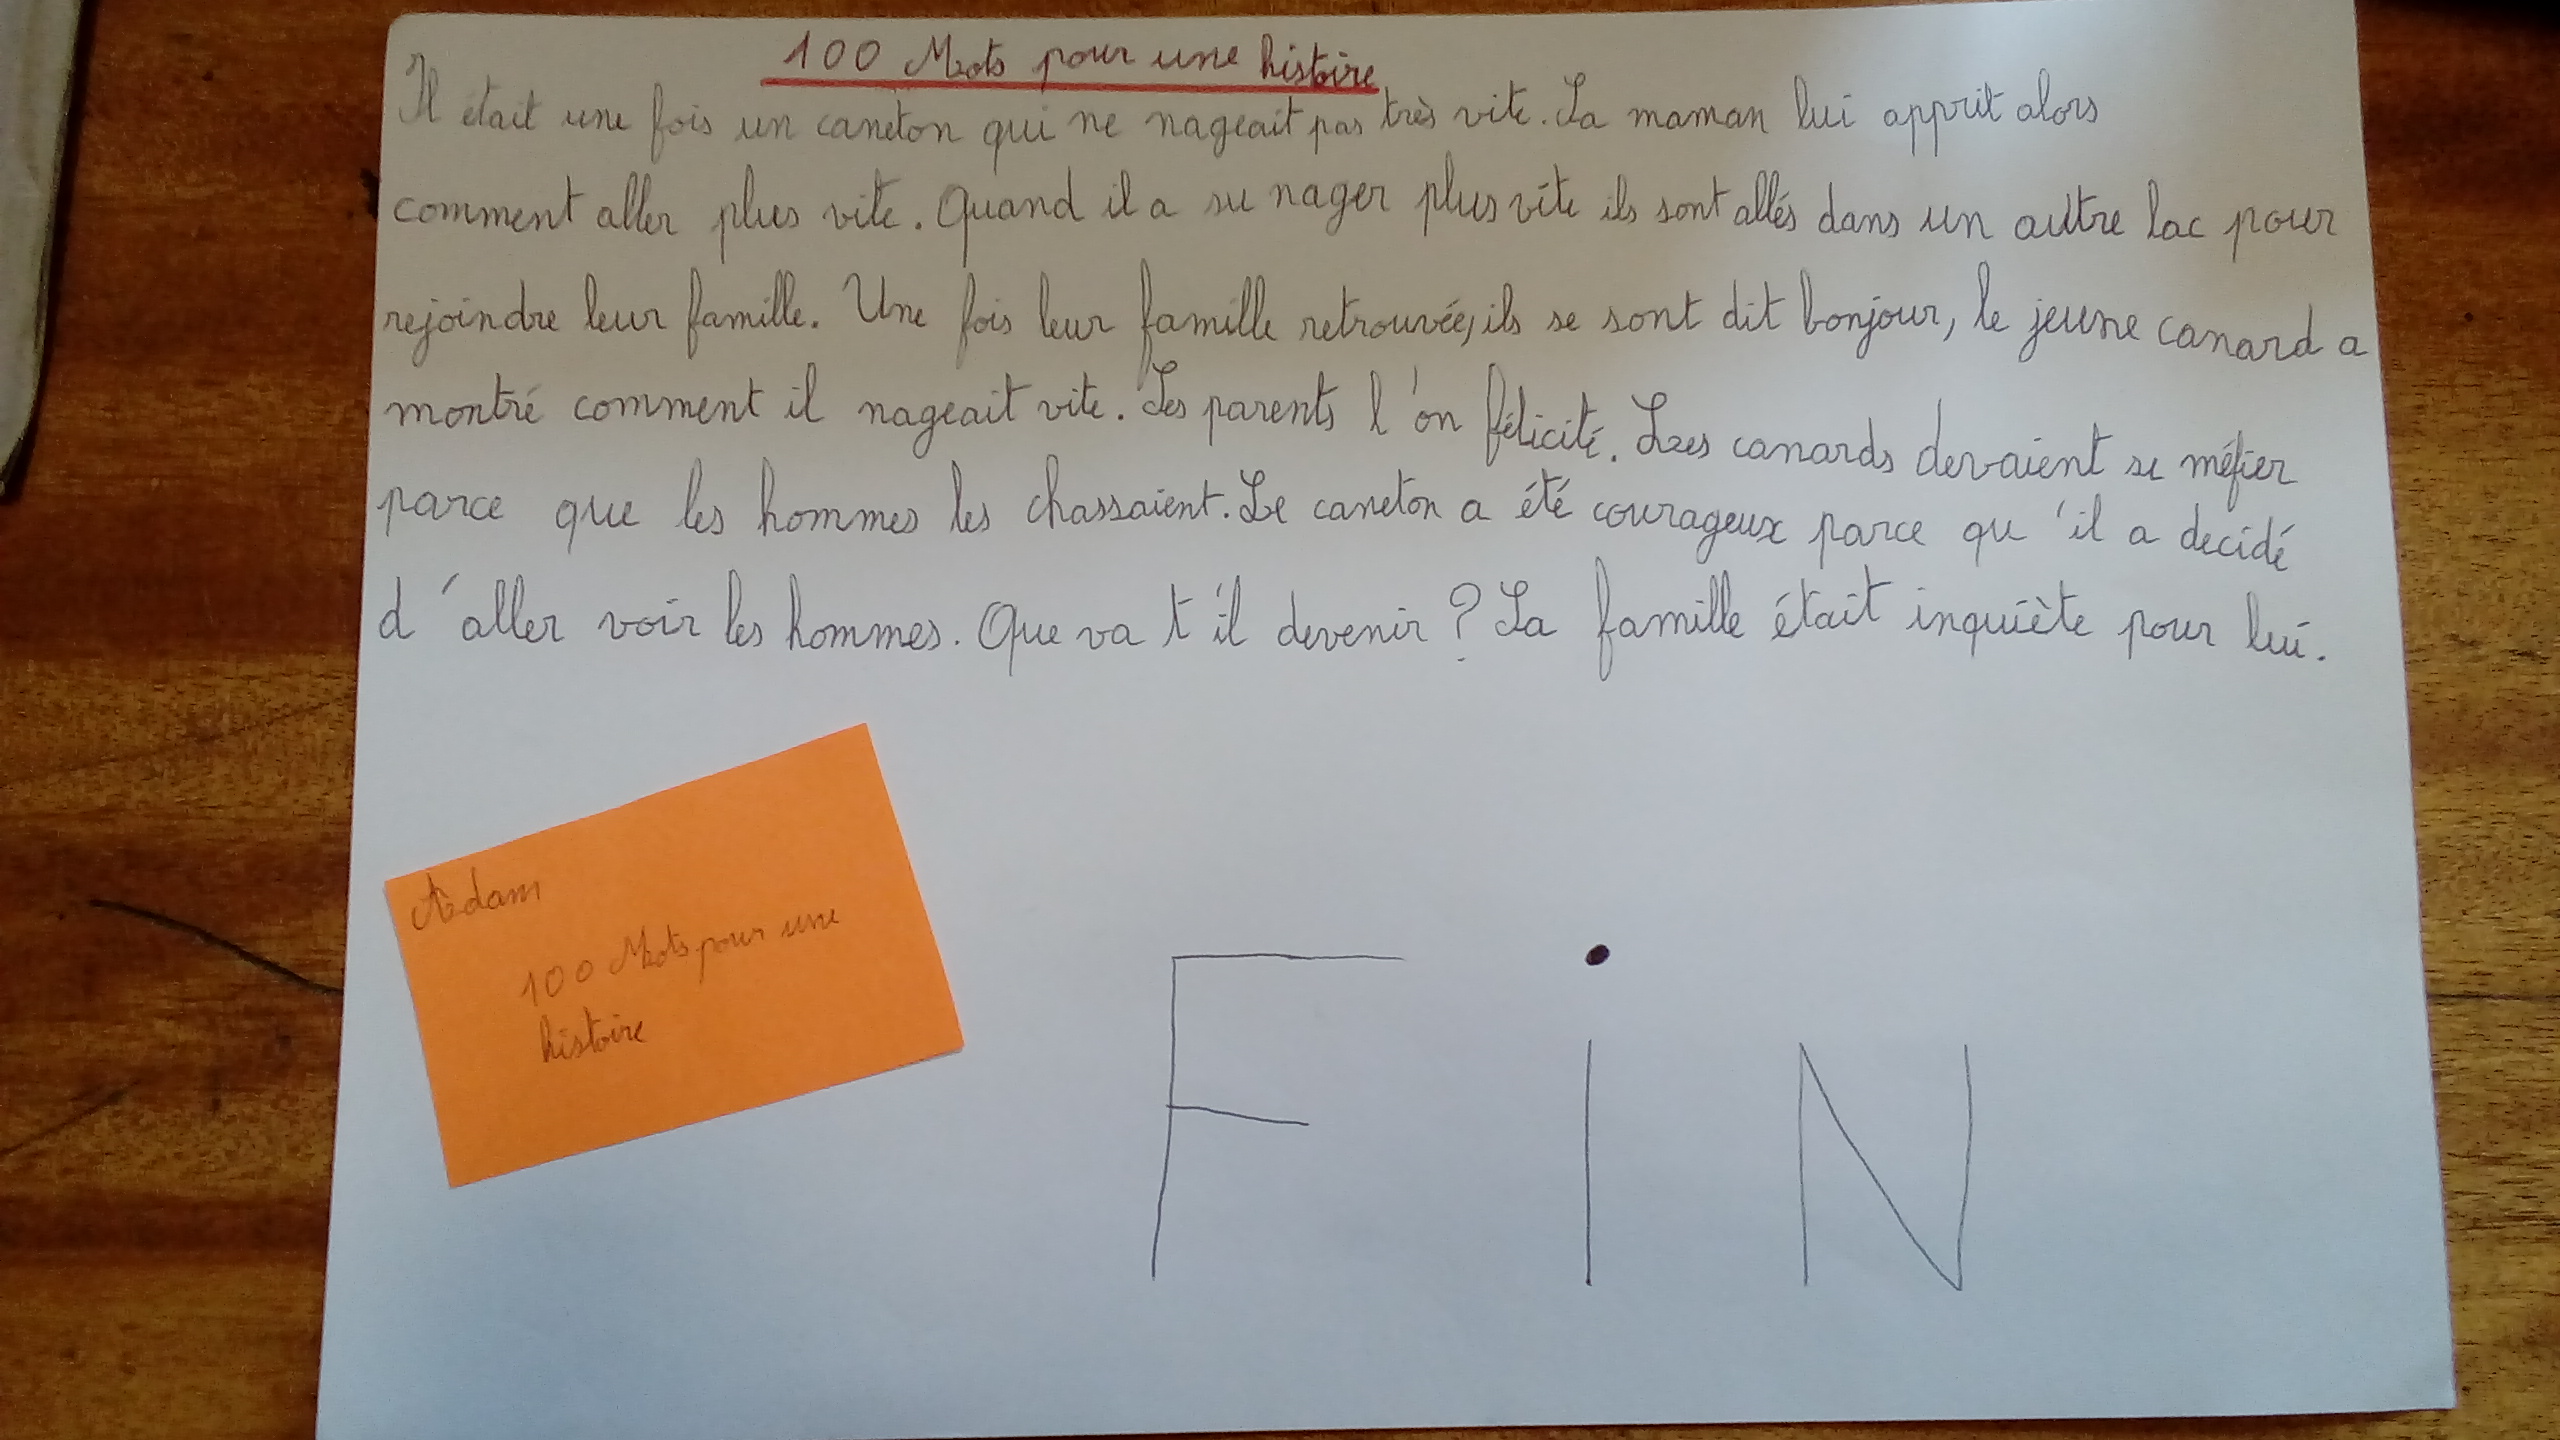 100 Mots pour une histoire
Il était une fois un caneton qui ne nageait pas très vite. La maman lui apprit alors
comment aller plus vite. Quand il a su nager plus vite ils sont allés dans un autre lac pour
rejoindre leur famille. Une fois leur famille retrouvée, ils se sont dit bonjour, le jeune canard a
montré comment il nageait vite. Les parents l'on félicité. Les canards devaient se méfier
parce que les hommes les chassaient. Le caneton a été courageux parce qu'il a decidé
d'aller voir les hommes. Que va t'il devenir ? La famille était inquiète pour lui.
Adam
100 Mots pour une
histoire
FiN